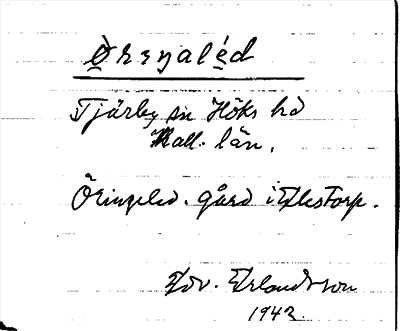 Öreŋaléd
Tjärby sn Höks hd
Hall. län.
Öringeled. gård i Elestorp.
Edv. Erlandsson
1942.